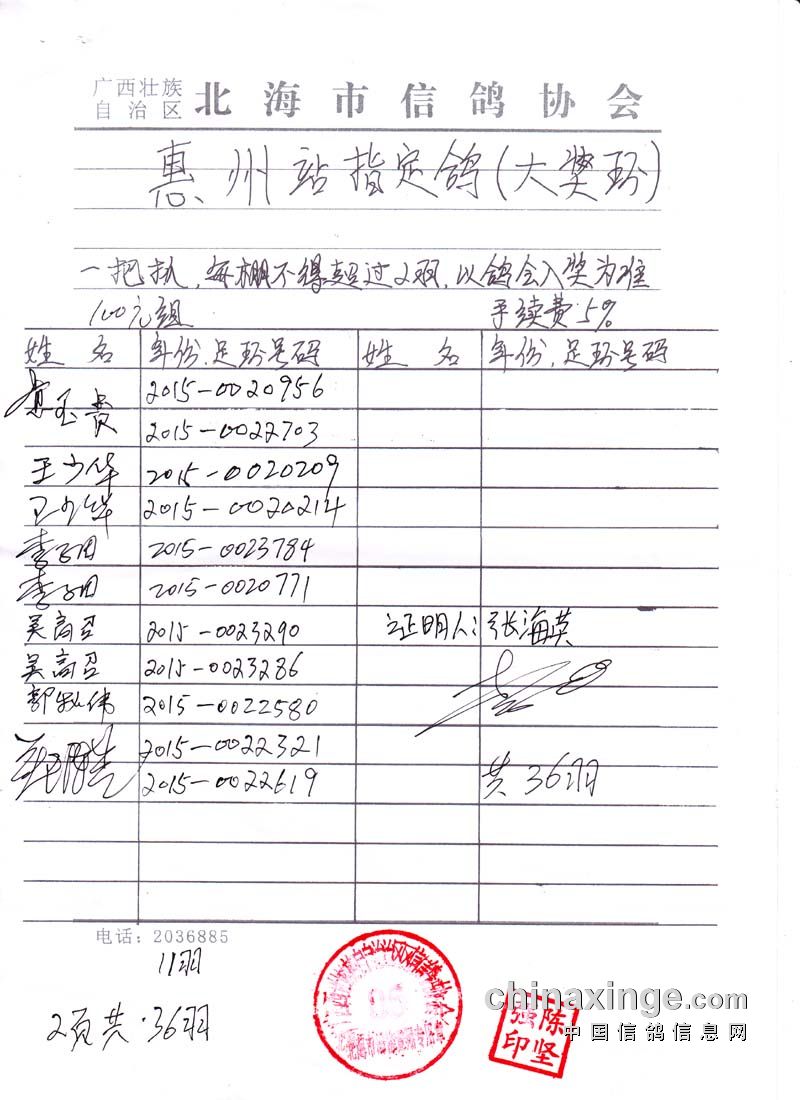 广西壮族
自治区
北海市信鸽协会
惠州站指定鸽(大奖环)
一把扒,每棚不得超过2羽,以鸽会入奖为准
100元组 手续费5%
姓 名 年份,足环号码 姓 名 年份,足环号码
2015-0020956
2015-0022703
王少华 2015-0020209
王少华 2015-0020214
2015-0023784
2015-0020771
吴高召 2015-0023290
证明人:张海英
吴高召 2015-0023286
2015-0022580
2015-0022321
2015-0022619
共36羽
电话:2036885
11羽
2页共·36羽
chinaxinge.com
中国信鸽信息网
陈坚
强印